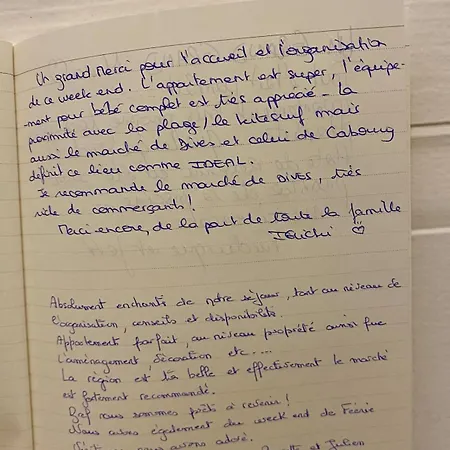 Un grand merci pour l'accueil et l'organisation
de ce week end. L'appartement est super, l'équipe-
ment pour bébé complet est très apprécié - la
proximité avec la plage, le kitesurf mais
aussi le marché de Dives et celui de Cabourg
définit ce lieu comme IDEAL.
Je recommande le marché de Dives, très
riche de commerçants !
Merci encore, de la part de toute la famille
Absolument enchantés de notre séjour, tant au niveau de
l'organisation, conseils et disponibilité.
Appartement parfait, au niveau propreté ainsi que
l'aménagement, décoration etc....
La région est très belle et effectivement le marché
est fortement recommandé.
Bref nous sommes prêts à revenir !
Nous avons également du week end de
nous avons adoré.
et Julien